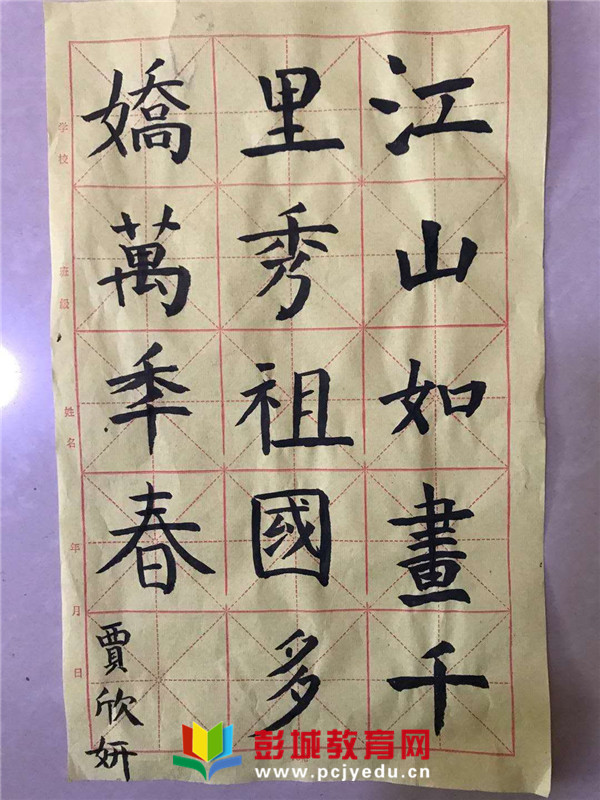 江山如畫千
里秀祖國多
嬌萬秊春
賈欣妍
学校
班級
姓名
年月日
彭城教育网
www.pcjyedu.cn